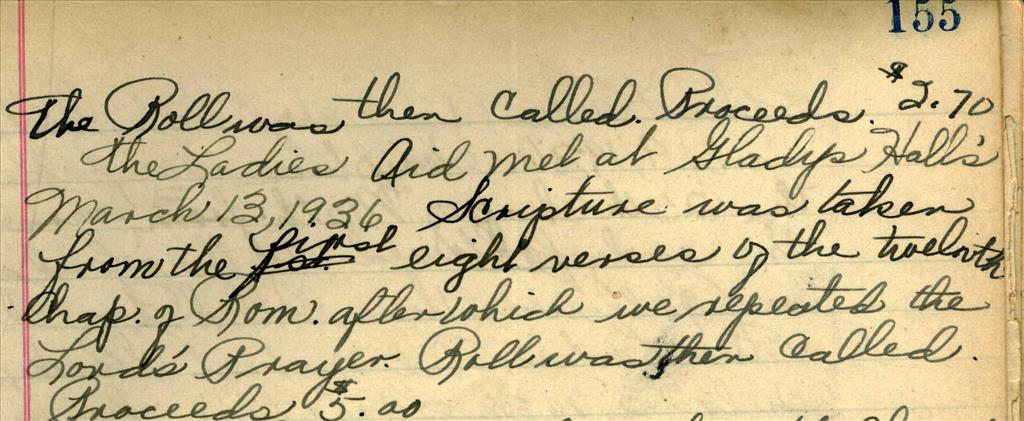 155
The Roll was then called. Proceeds. $2.70
The Ladies Aid met at Gladys Hall's
March 13, 1936 Scripture was taken
from the first eight verses of the twelvth
Chap. of Rom. after which we repeated the
Lord's Prayer. Roll was then called.
Proceeds $5.00